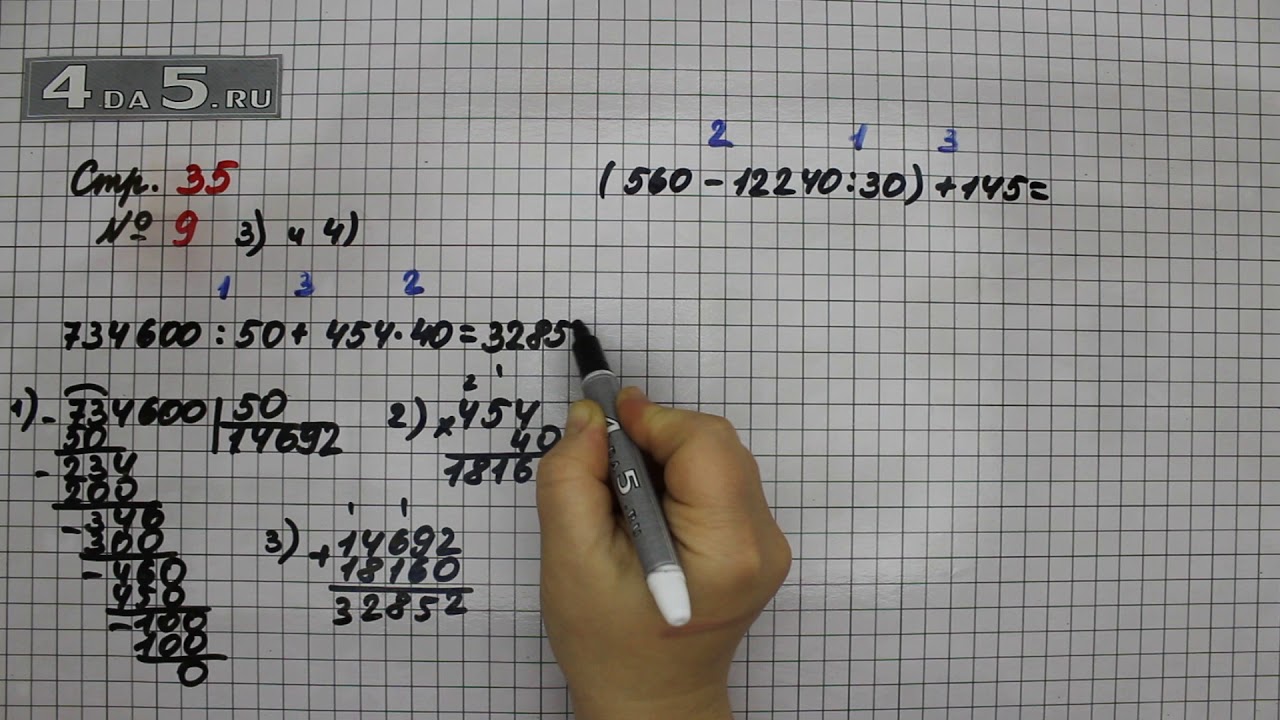 4DA5.RU
Стр. 35
№ 9 3) и 4)
1 3 2
734600 : 50 + 454 · 40 = 3285
1) - 734600 | 50
50 14692
- 234
200
- 346
300
- 460
450
- 100
100
0
2 1
2) × 454
40
1816
1 1
3) + 14692
18160
32852
2 1 3
( 560 - 12240 : 30) + 145 =